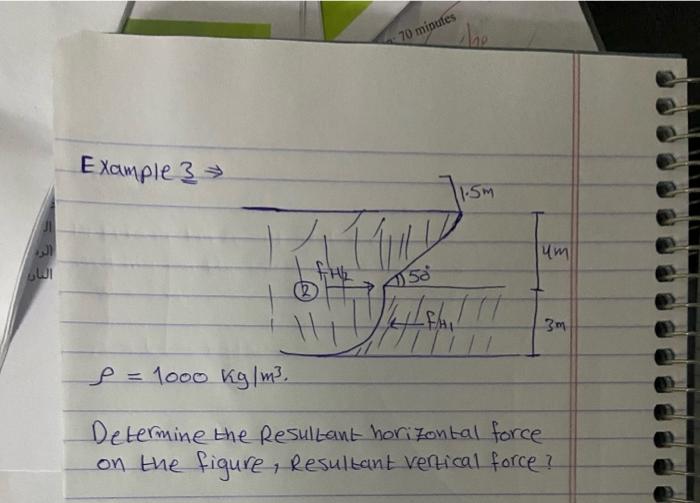 70 minutes
Example 3 ⇒
1.5m
4m
fH2
②
50°
fH1
3m
ρ = 1000 kg/m³.
Determine the Resultant horizontal force
on the figure, Resultant vertical force?